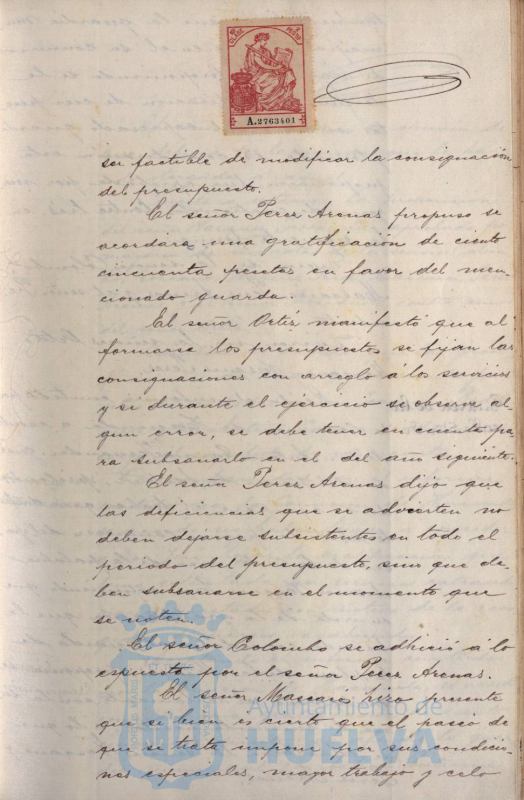 A.2763401
ser factible de modificar la consignación
del presupuesto.
El señor Perez Arenas propuso se
acordara una gratificación de ciento
cincuenta pesetas en favor del men-
cionado guarda.
El señor Ortiz manifestó que al
formarse los presupuestos se fijan las
consignaciones con arreglo á los servicios
y si durante el ejercicio se observa al-
gun error, se debe tener en cuenta pa-
ra subsanarlo en el del año siguiente.
El señor Perez Arenas dijo que
las deficiencias que se advierten no
deben dejarse subsistentes en todo el
periodo del presupuesto, sino que de-
ben subsanarse en el momento que
se noten.
El señor Colombo se adhirió á lo
expuesto por el señor Perez Arenas.
El señor Mascaró hizo presente
que si bien es cierto que el paseo de
que se trata impone por sus condicio-
nes especiales, mayor trabajo y celo
Ayuntamiento de
HUELVA